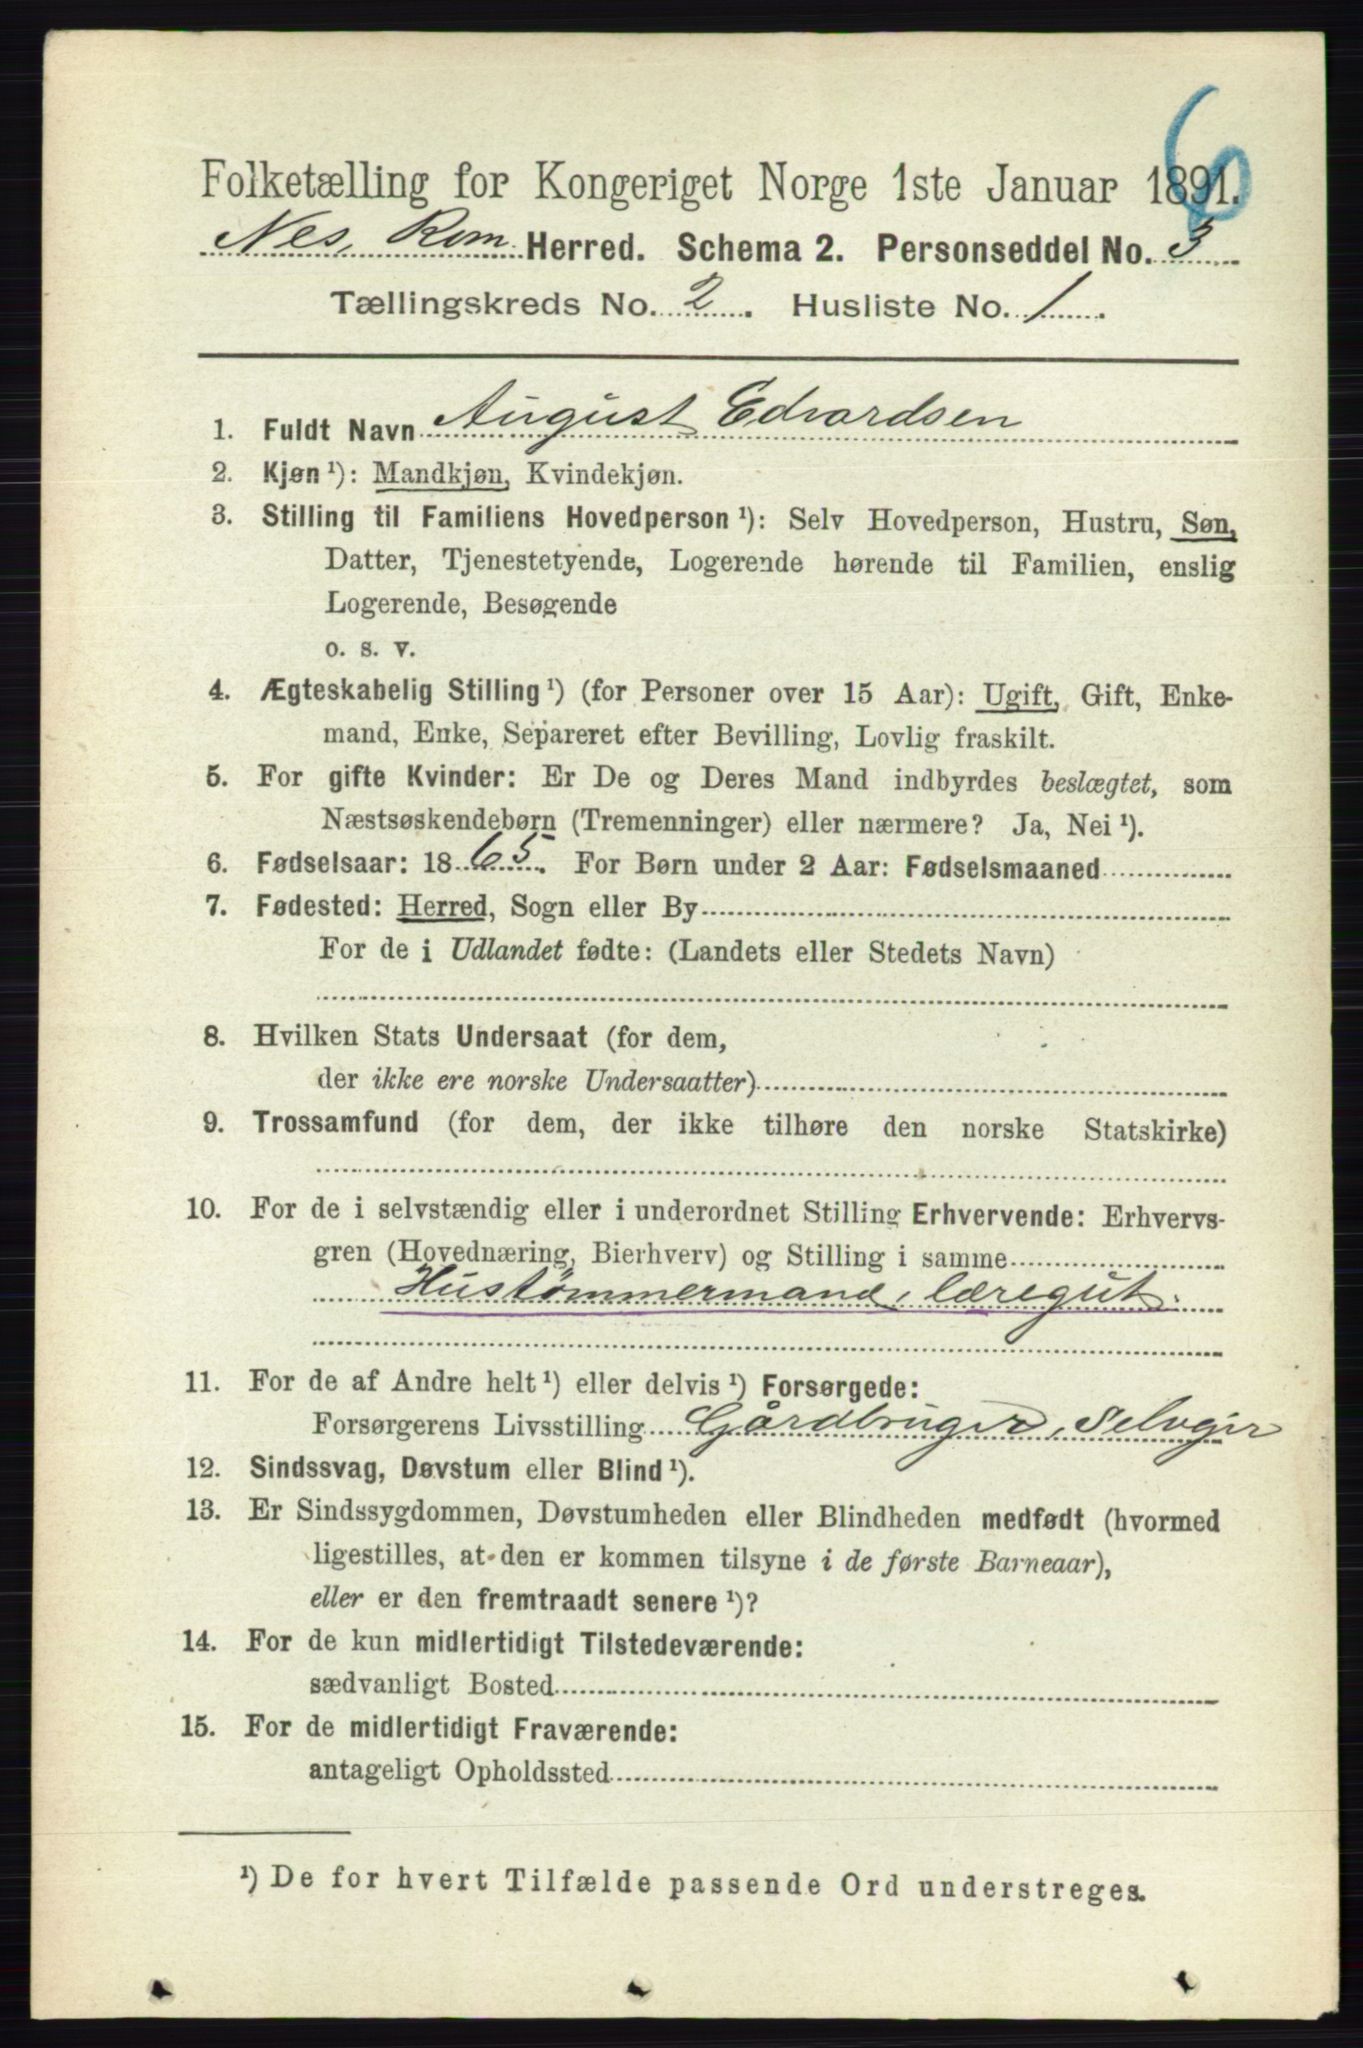 6
Folketælling for Kongeriget Norge 1ste Januar 1891.
Nes, Rom. Herred. Schema 2. Personseddel No. 3
Tællingskreds No. 2. Husliste No. 1.
1. Fuldt Navn August Edvardsen
2. Kjøn ¹): Mandkjøn, Kvindekjøn.
3. Stilling til Familiens Hovedperson ¹): Selv Hovedperson, Hustru, Søn,
Datter, Tjenestetyende, Logerende hørende til Familien, enslig
Logerende, Besøgende
o. s. v.
4. Ægteskabelig Stilling ¹) (for Personer over 15 Aar): Ugift, Gift, Enke-
mand, Enke, Separeret efter Bevilling, Lovlig fraskilt.
5. For gifte Kvinder: Er De og Deres Mand indbyrdes beslægtet, som
Næstsøskendebørn (Tremenninger) eller nærmere? Ja, Nei ¹).
6. Fødselsaar: 1865. For Børn under 2 Aar: Fødselsmaaned
7. Fødested: Herred, Sogn eller By
For de i Udlandet fødte: (Landets eller Stedets Navn)
8. Hvilken Stats Undersaat (for dem,
der ikke ere norske Undersaatter)
9. Trossamfund (for dem, der ikke tilhøre den norske Statskirke)
10. For de i selvstændig eller i underordnet Stilling Erhvervende: Erhvervs-
gren (Hovednæring, Bierhverv) og Stilling i samme
Hustømmermand, læregut.
11. For de af Andre helt ¹) eller delvis ¹) Forsørgede:
Forsørgerens Livsstilling Gårdbruger, Selvejer
12. Sindssvag, Døvstum eller Blind ¹).
13. Er Sindssygdommen, Døvstumheden eller Blindheden medfødt (hvormed
ligestilles, at den er kommen tilsyne i de første Barneaar),
eller er den fremtraadt senere ¹)?
14. For de kun midlertidigt Tilstedeværende:
sædvanligt Bosted
15. For de midlertidigt Fraværende:
antageligt Opholdssted
¹) De for hvert Tilfælde passende Ord understreges.